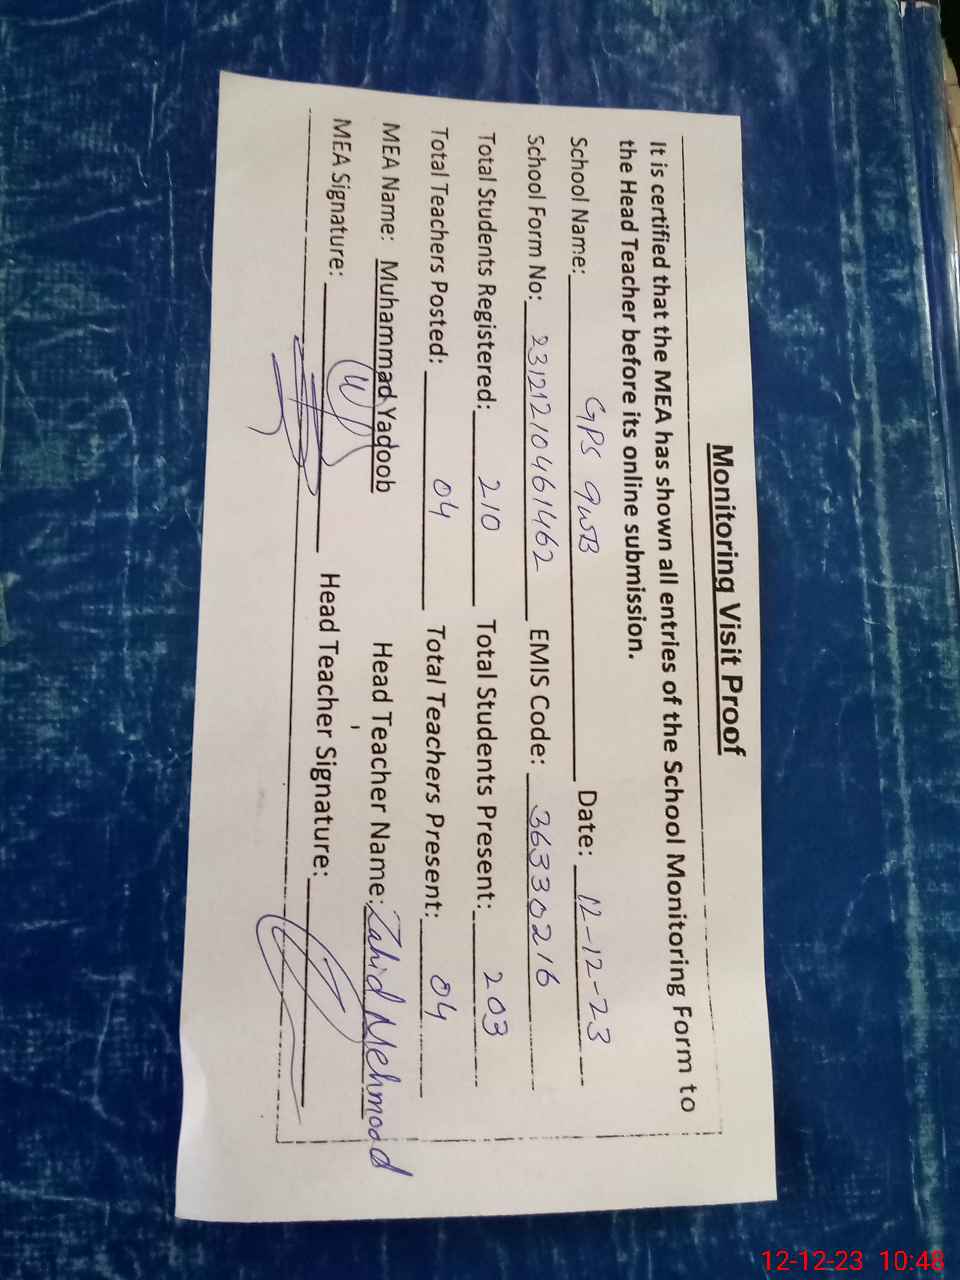 Monitoring Visit Proof
It is certified that the MEA has shown all entries of the School Monitoring Form to
the Head Teacher before its online submission.
School Name: GPS 9WB Date: 12-12-23
School Form No: 23121210461462 EMIS Code: 36330216
Total Students Registered: 210 Total Students Present: 203
Total Teachers Posted: 04 Total Teachers Present: 04
MEA Name: Muhammad Yadoob Head Teacher Name: Zahid Mehmood
MEA Signature: Head Teacher Signature:
12-12-23 10:48